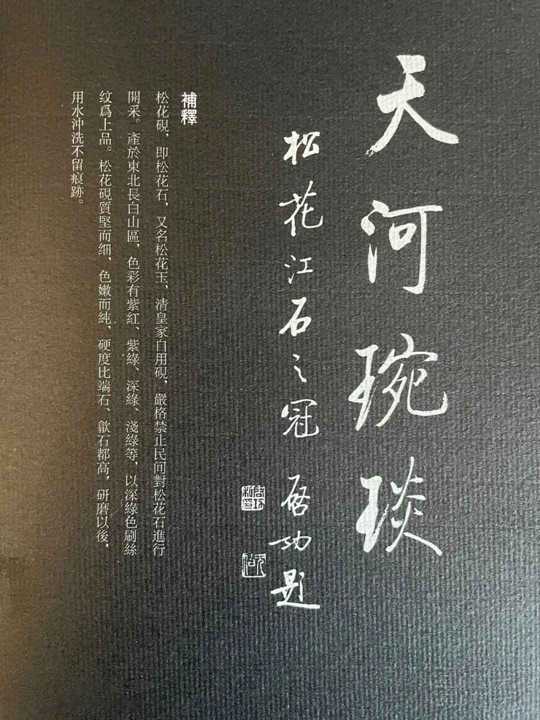 天河琬琰
松花江石之冠 啓功題
補釋
松花硯，即松花石，又名松花玉、清皇家自用硯，嚴格禁止民间對松花石進行
開采。產於東北長白山區，色彩有紫紅、紫綠、深綠、淺綠等，以深綠色刷絲
纹爲上品。松花硯質堅而细、色嫩而純、硬度比端石、歙石都高，研磨以後，
用水沖洗不留痕跡。